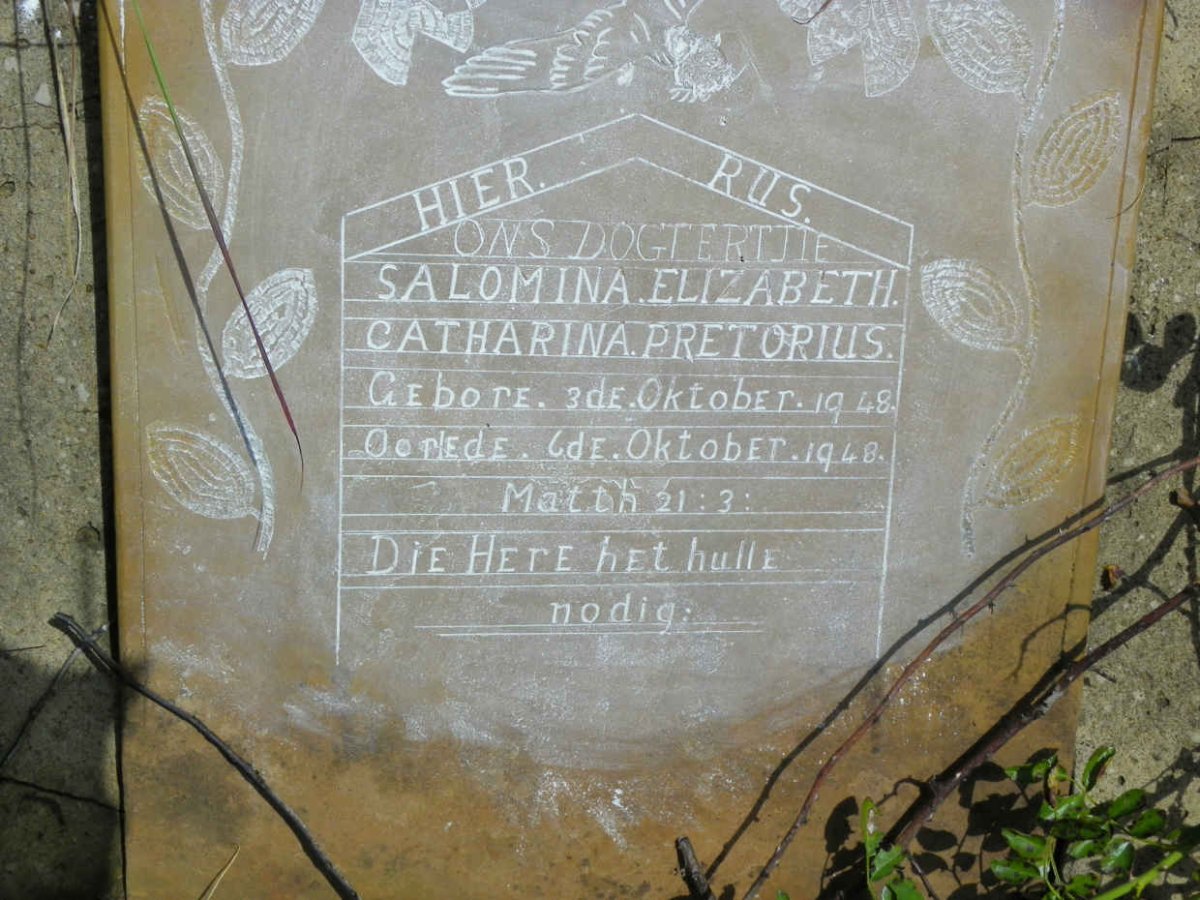 HIER. RUS.
ONS DOGTERTJIE
SALOMINA. ELIZABETH.
CATHARINA. PRETORIUS.
GEborE. 3dE. OktobEr. 1948.
OorlEdE. 6dE. OktobEr. 1948.
Matth 21 : 3 :
DiE HErE het hulle
nodig: